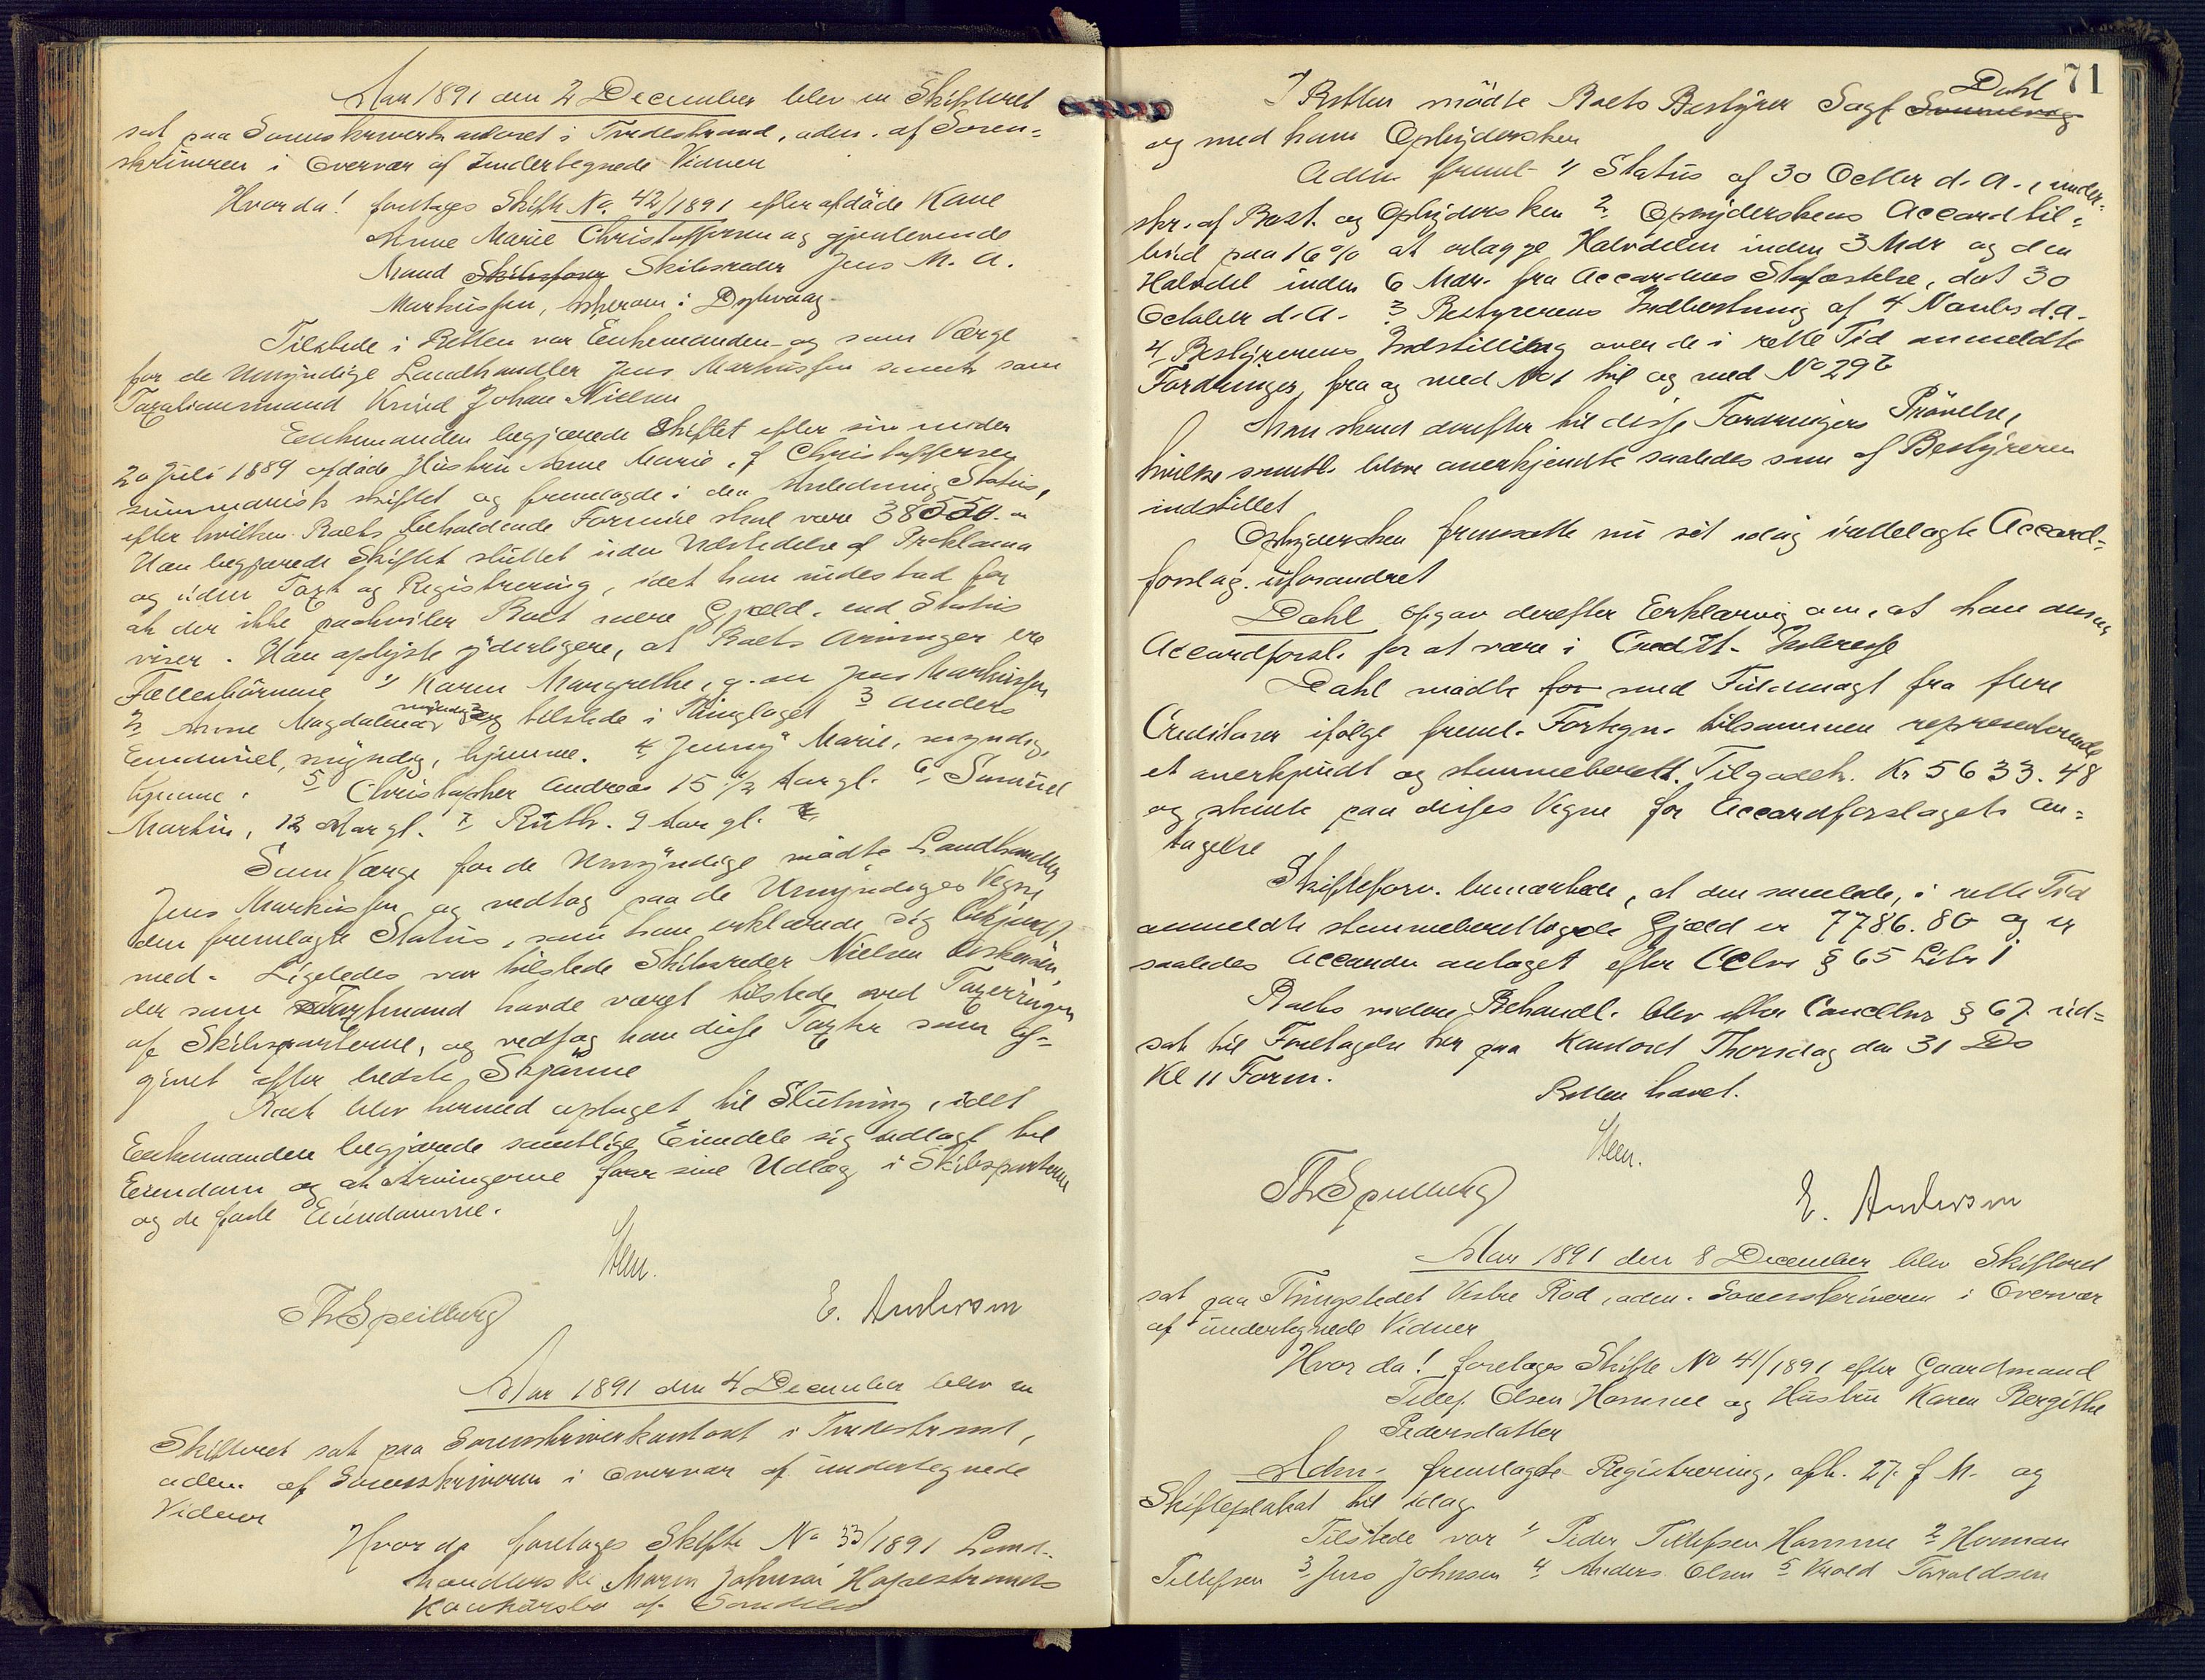 Aar 1891 den 2 December blev en Skifteret
sat paa Sorenskriverkontoret i Tvedestrand, adm. af Soren-
skriveren i Overvær af Undertegnede Vidner
Hvorda! foretages Skifte No. 42/1891 efter afdöde Kone
Anne Marie Christoffersen og gjenlevende
Mand Skibsfører Skibsreder Jens M. A.
Markussen, i Dybvaag.
Tilstede i Retten var Enkemanden og som Værge
for de Umyndige Landhandler Jens Markussen samt som
Taxationsmand Knud Johan Nielsen
Enkemanden begjærede Skiftet efter sin under
20 Juli 1889 afdöde Hustru Anne Marie, f Christoffersen
summarisk skiftet og fremlagde i den Anledning Status,
efter hvilken Boets beholdende Formue skal være 38550.
Han begjærede Skiftet sluttet uden Udstedelse af Proklama
og uden Taxt og Registrering, idet han indestod for
at der ikke paahviler Boet mere Gjæld, end Status
viser. Han oplyste yderligere, at Boets Arvinger ere
Fællesbörnene 1) Karen Margrethe, g. m Jens Markussen
2, Anne Magdalena, myndig og tilstede i Thinglaget 3 Anders
Emanuel, myndig, hjemme. 4 Jenny Marie, myndig,
hjemme. 5 Christopher Andreas 15 1/2 Aar gl. 6, Samuel
Martin, 12 Aar gl. 7 Ruth. 9 Aar gl.
Som Værge for de Umyndige mödte Landhandler
Jens Markussen og vedtog paa de Umyndiges Vegne
den fremlagte Status, som han erklærede sig tilfreds
med. Ligeledes var tilstede Skibsreder Nielsen
der som Taxtmand havde været tilstede ved Taxeringen
af Skibsparterne, og vedtog han disse Taxter som af-
givet efter bedste Skjönne
Boet blev hermed optaget til Slutning, idet
Enkemanden begjærede samtlige Eiendele sig udlagt til
Eiendom og at Arvingerne faar sine Udlæg i Skibsparterne
og de faste Eiendomme.
Steen.
Th Speilberg
E. Andersen
Aar 1891 den 4 December blev en
Skifteret sat paa Sorenskriverkontoret i Tvedestrand,
adm. af Sorenskriveren i Overvær af undertegnede
Vidner
Hvor da foretages Skifte No 33/1891 Land-
handlerske Maren Johnsen Hopestrands
Konkursbo af Sandnes
71
I Retten mödte Boets Bestyrer Sagf Dahl
og med ham Opbydersken
Adm. freml. 1) Status af 30 Octbr d. A., under-
skr. af Best. og Opbydersken 2, Opbyderskens Accordtil-
bud paa 16 % at erlægge Halvdelen inden 3 Mdr og den
Halvdel inden 6 Mdr. fra Accordens Stadfæstelse, dat 30
October d. A. 3 Bestyrerens Indberetning af 4 Novbr d. A.
4, Bestyrerens Indstilling over de i rette Tid anmeldte
Fordringer, fra og med No 1 til og med No 29b
Man skred derefter til disse Fordringers Prövelse,
hvilke samtl. bleve anerkjendte saaledes som af Bestyreren
indstillet
Opbydersken fremsatte nu sit idag irettelagte Accord-
forslag uforandret
Dahl afgav derefter Erklæring om, at han anser
Accordforsl. for at være i Credit. Interesse
Dahl mödte for med Fuldmagt fra flere
Creditorer ifölge freml. Fortegn. tilsammen repræsenterende
et anerkjendt og stemmeberett. Tilgodeh. Kr 5633.48
og stemte paa disses Vegne for Accordforslagets An-
tagelse
Skifteforv. bemærkede, at den samlede, i rette Tid
anmeldte stemmeberettigede Gjæld er 7786.80 og er
saaledes Accorden antaget efter CClov § 65 Litr 1
Boets videre Behandl. blev efter Concllov § 67 ud-
sat til Foretagelse her paa Kontoret Thorsdag den 31 Ds
Kl 11 Form.
Retten hævet.
Steen.
Th Speilberg
E. Andersen
Aar 1891 den 8 December blev Skifteret
sat paa Thingstedet Vestre Röd, adm. Sorenskriveren i Overvær
af undertegnede Vidner
Hvor da! foretages Skifte No 41/1891 efter Gaardmand
Tellef Olsen Homme og Hustru Karen Bergithe
Pedersdatter
Adm. fremlagde Registrering, afh. 27 f M. og
Skifteplakat til idag
Tilstede var 1) Peder Tellefsen Homme 2 Herman
Tellefsen 3, Jens Johnsen 4, Anders Olsen 5 Knold Taraldsen